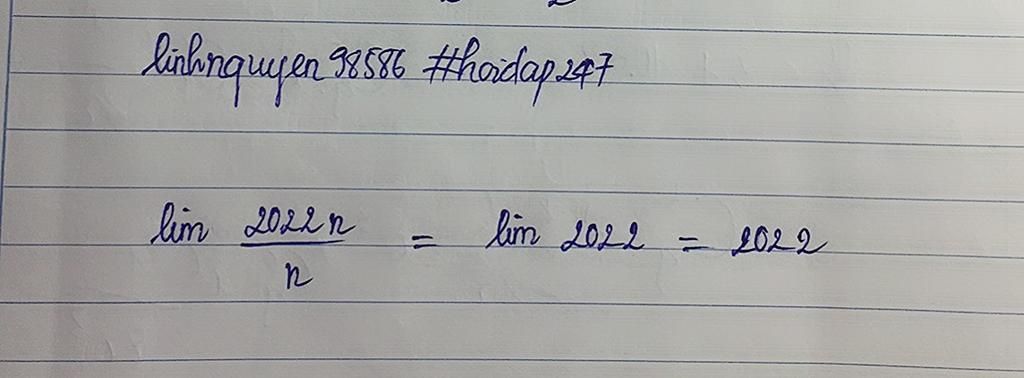 linhnguyen98586 #hoidap247
lim 2022n / n = lim 2022 = 2022